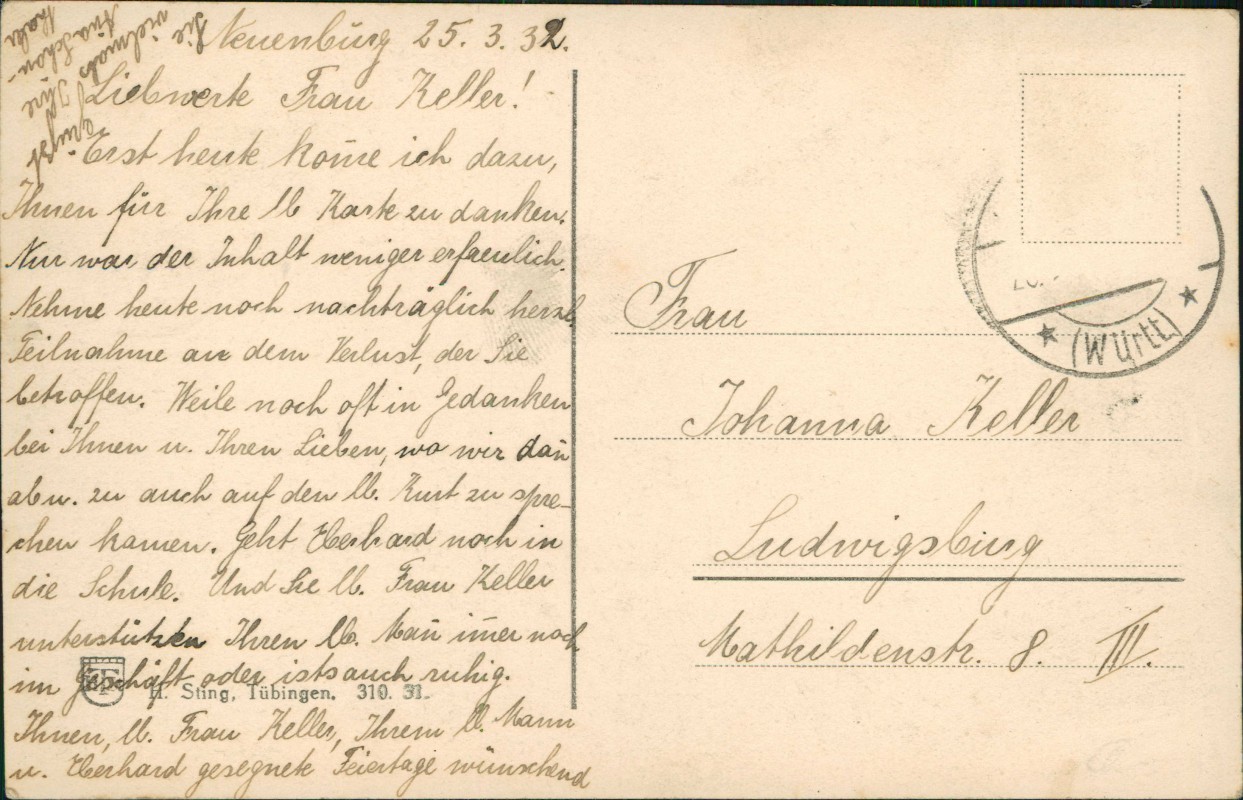 Neuenbürg 25.3.32.
Liebwerte Frau Keller!
Erst heute kom̄e ich dazu,
Ihnen für Ihre lb Karte zu danken.
Nur war der Inhalt weniger erfreulich.
Nehme heute noch nachträglich herzl.
Teilnahme an dem Verlust, der Sie
betroffen. Weile noch oft in Gedanken
bei Ihnen u. Ihren Lieben, wo wir dan̄
ab u. zu auch auf den lb. Kurt zu spre-
chen kamen. Geht Eberhard noch in
die Schule. Und Sie lb. Frau Keller
unterstützen Ihren lb. Man̄ im̄er noch
im Geschäft oder ists auch ruhig.
Ihnen, lb. Frau Keller, Ihrem lb. Mann
u. Eberhard gesegnete Feiertage wünschend
grüßt
Sie vielmals Ihre
H. Sting, Tübingen. 310. 31.
(Württ)
Frau
Johanna Keller
Ludwigsburg
Mathildenstr. 8. III.